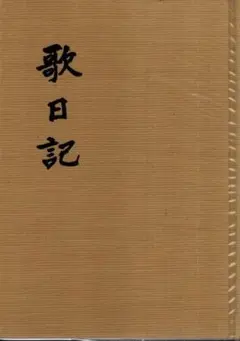 歌日記